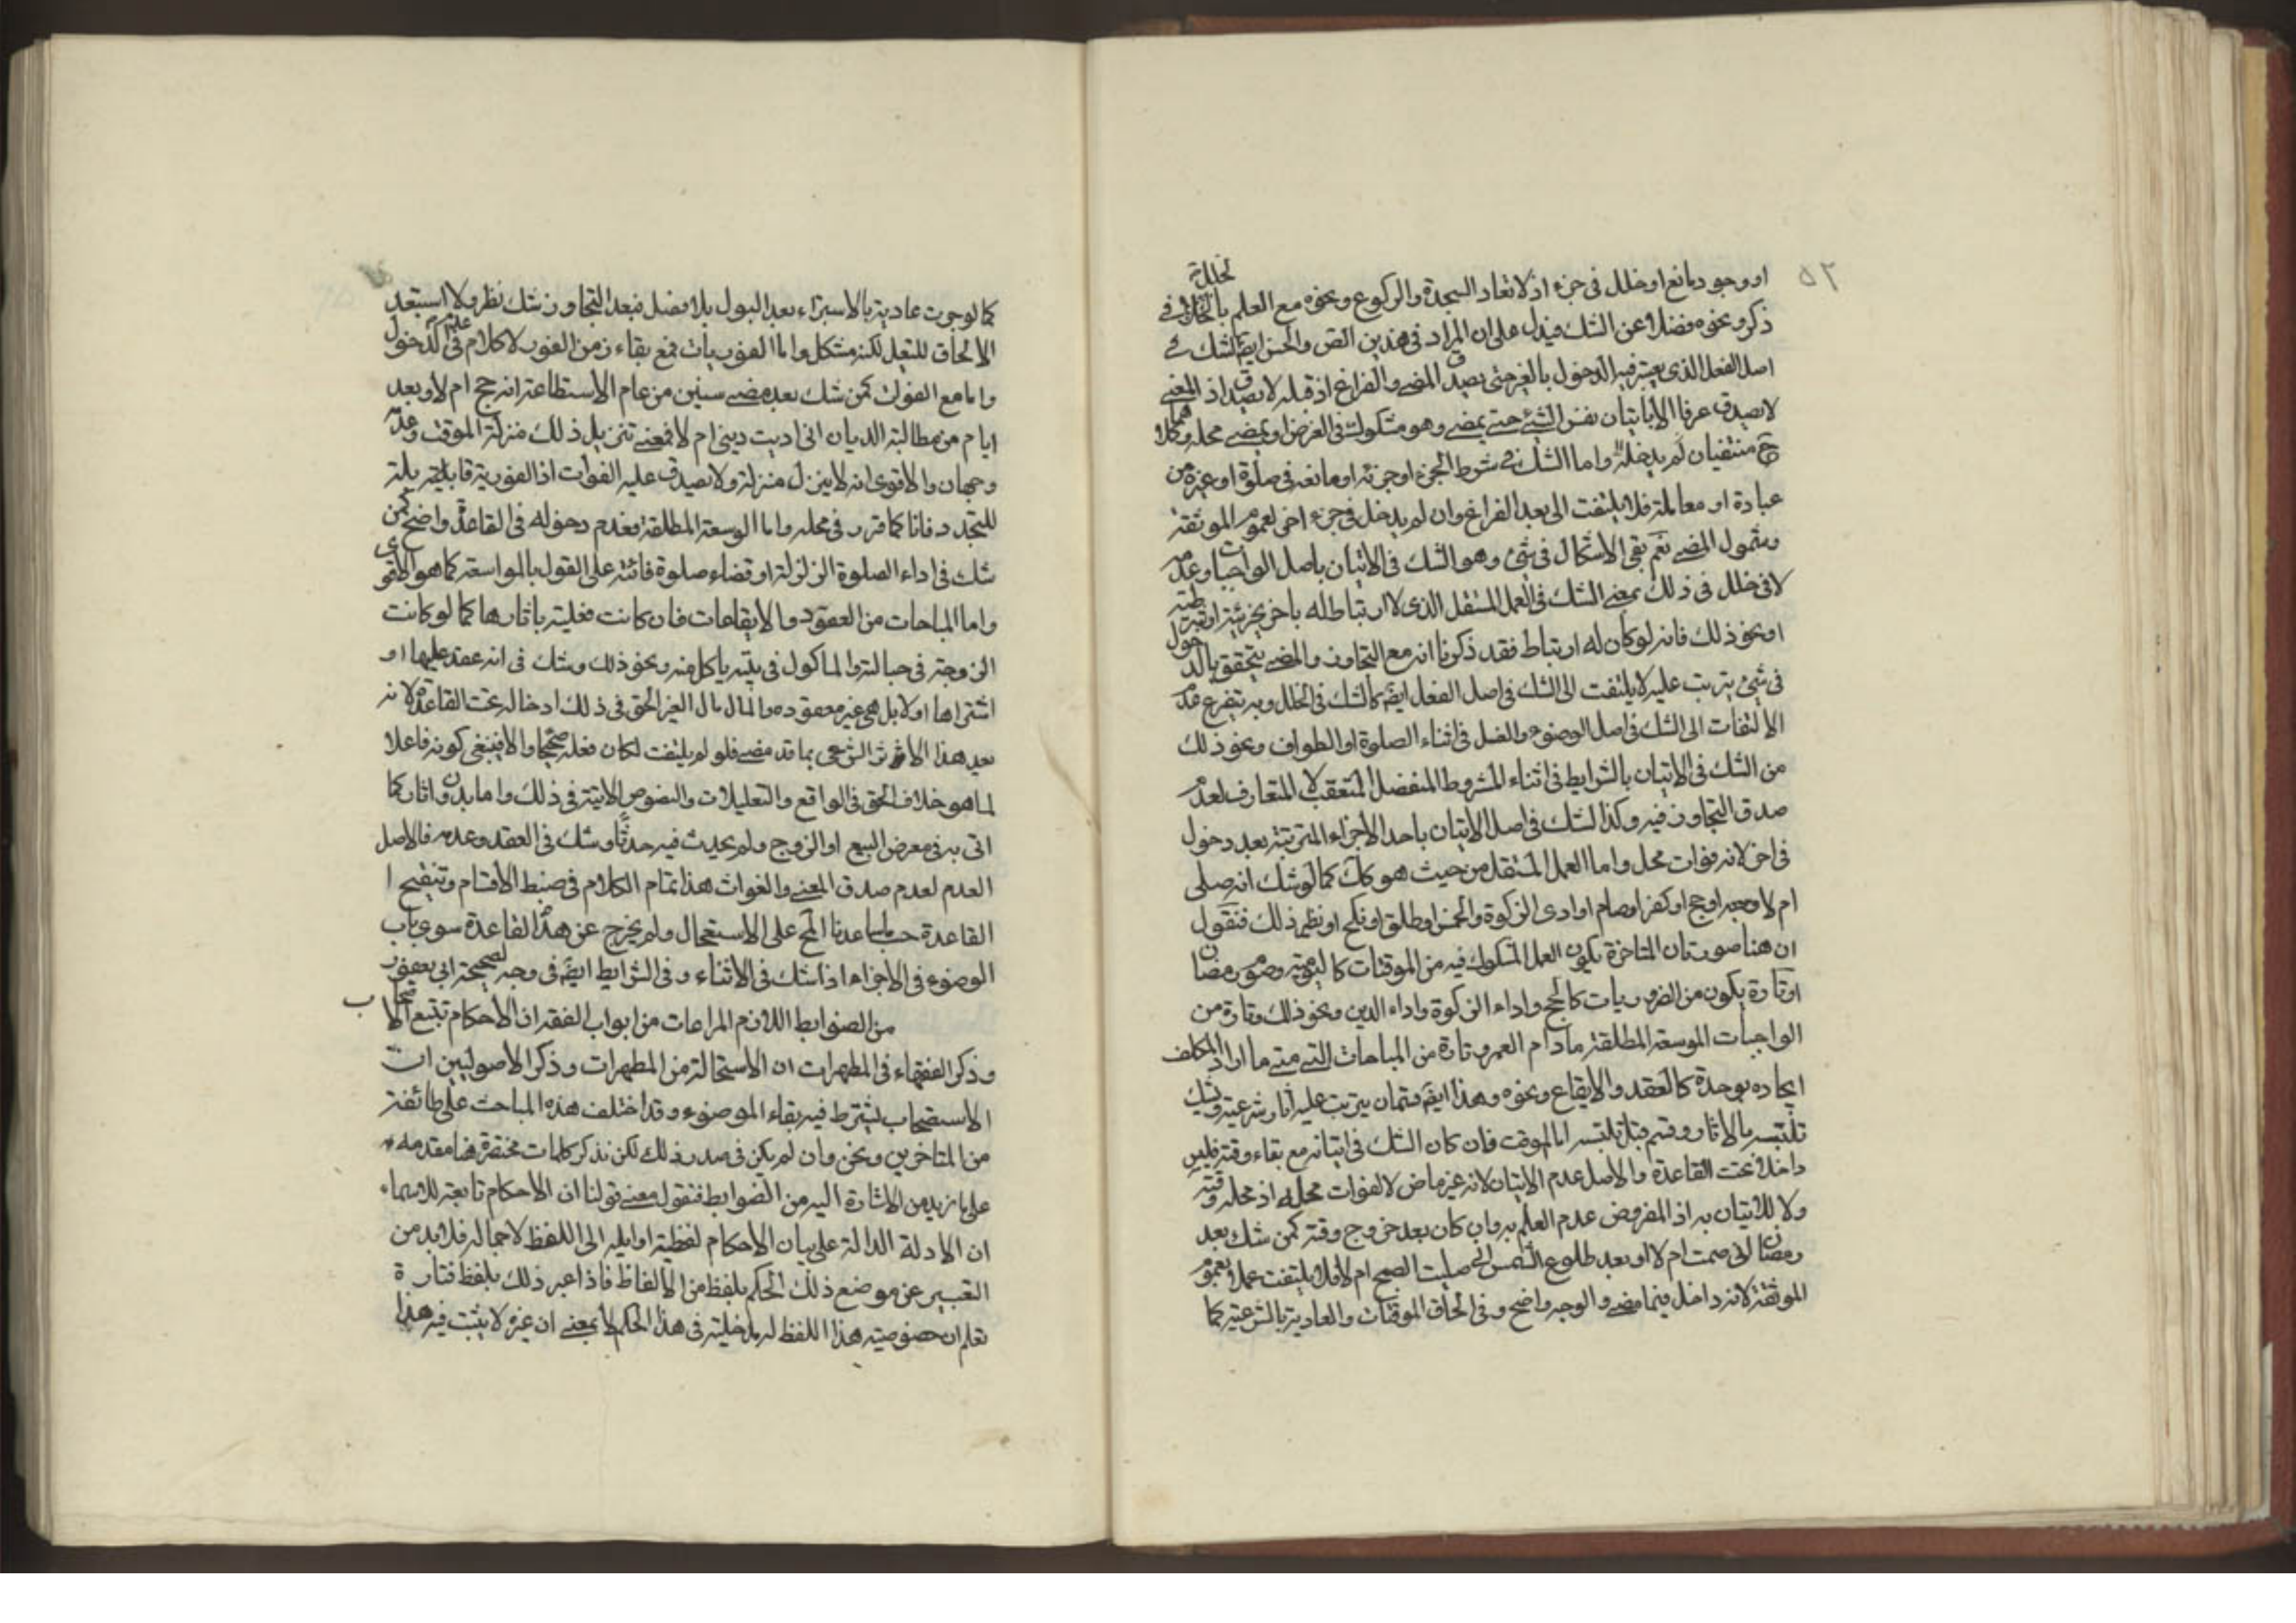 ٥٢
او وجود مانع او خلل فى جزء اذ لا تعاد السجدة والركوع ونحوه مع العلم بالخلل فى
ذكر ونحوه فضلا عن الشك فيدل على ان المراد فى هذين النص والحسن ايضا الشك فى
اصل الفعل الذى يعتبر فيه الدخول بالغير حتى يصدق المضى والفراغ اذ قبله لا يصدق اذ المضى
لا يصدق عرفا الا باتيان نفس الشئ حتى يمضى وهو مشكوك فى الفرض او بمضى محله وكلاهما
ح منتفيان لم يدخله واما الشك فى شرط الجزء او جزئه او مانعه فى صلوة او غيره من
عبادة او معاملة فلا يلتفت الى بعد الفراغ وان لم يدخل فى جزء اخر لعموم الموثقة
وشمول المضى نعم بقى الاشكال فى شئ وهو الشك فى الاتيان باصل الواجبات وعدمه
لا فى خلل فى ذلك بمعنى الشك فى العمل المستقل الذى لا ارتباط له باخر بجزئية او شرطية
او نحو ذلك فانه لو كان له ارتباط فقد ذكرنا انه مع التجاوز والمضى يتحقق بالدخول
فى شئ يترتب عليه لا يلتفت الى الشك فى اصل الفعل ايضا كالشك فى الخلل وبه يتفرع عدم
الالتفات الى الشك فى اصل الوضوء والغسل فى اثناء الصلوة او الطواف ونحو ذلك
من الشك فى الاتيان بالشرايط فى اثناء المشروط المنفصل المتعقب لا المتعارف لعدم
صدق التجاوز فيه وكذا الشك فى اصل الاتيان باحد الاجزاء المترتبة بعد دخول
فى اخر لانه فوات محل واما العمل المستقل من حيث هو كك كما لو شك انه صلى
ام لا او حج او كفر او صام او ادى الزكوة والخمس او طلق او نكح او نظير ذلك فنقول
ان هنا صورتان المتاخرة يكون العمل المشكوك فيه من الموقتات كاليومية وصوم رمضان
او تارة يكون من الفوريات كالحج واداء الزكوة واداء الدين ونحو ذلك وتارة من
الواجبات الموسعة المطلقة ما دام العمر وتارة من المباحات التى متى ما اراد المكلف
ايجاده يوجده كالعقد والايقاع ونحوه وهذا ايضا قسمان يترتب عليه اثار شرعية ويشك
تلبسه بالاثار وقسم قبل تلبسه اما الموقت فان كان الشك فى اتيانه مع بقاء وقته فليس
داخلا تحت القاعدة والاصل عدم الاتيان لانه غير ماض لا لفوات محله اذ محله وقته
ولا للاتيان به اذ المفروض عدم العلم به وان كان بعد خروج وقته كمن شك بعد
رمضان انى صمت ام لا او بعد طلوع الشمس انى صليت الصبح ام لا فلا يلتفت عملا بعموم
الموثقة لانه داخل فيما مضى والوجه واضح وفى الحاق الموقتات والعادية بالشرعية كما
كما لو جرت عادية بالاستبراء بعد البول بلا فصل فبعد التجاوز شك نظر ولا استبعد
الالحاق للتعليل لكنه مشكل واما الفوريات فمع بقاء زمن الفور لا كلام فى عدم الدخول
واما مع الفوات كمن شك بعد مضى سنين من عام الاستطاعة انه حج ام لا وبعد
ايام من مطالبة الديان انى اديت دينى ام لا فمعنى تنزيل ذلك منزلة الموقت وعدمه
وجهان والاقوى انه لا ينزل منزلة ولا يصدق عليه الفوات اذ الفورية قابلية بلة
للتجدد فانا كما قرر فى محله واما الموسعة المطلقة فعدم دخوله فى القاعدة واضح كمن
شك فى اداء الصلوة الزلزلة او قضاء صلوة فائتة على القول بالمواسعة كما هو الاقوى
واما المباحات من العقود والايقاعات فان كانت متلبسة باثارها كما لو كانت
الزوجة فى حبالته والماكول فى بيته ياكل منه ونحو ذلك وشك فى انه عقد عليها او
اشتراها او لا بل هى غير معقوده والمال مال الغير الحق فى ذلك ادخاله تحت القاعدة لانه
بعد هذا الاثر الشرعى بما قد مضى فلو لم يلتفت لكان فعله صحيحا والا فينبغى كونه فاعلا
لما هو خلاف الحق فى الواقع والتعليلات والنصوص الاتية فى ذلك واما بدون اثار كما
اتى به فى معرض البيع او الزوج ولم يحدث فيه حدثا وشك فى العقد وعدمه فالاصل
العدم لعدم صدق المعنى والفوات هذا تمام الكلام فى ضبط الاقسام وتنقيح ا
القاعدة حسبما ساعدنا المح على الاستعجال ولم يخرج عن هذه القاعدة سوى باب
الوضوء فى الاجزاء اذا شك فى الاثناء وفى الشرايط ايضا فى وجه لصحيحة ابى يعفور
من الضوابط اللازم المراعات من ابواب الفقه ان الاحكام تتبع الاستصحاب
وذكر الفقهاء فى المطهرات ان الاستحالة من المطهرات وذكر الاصوليين ان
الاستصحاب يشترط فيه بقاء الموضوع وقد اختلف هذه المباحث على طائفة
من المتاخرين ونحن وان لم يكن فى صدد ذلك لكن نذكر كلمات مختصرة هنا مقدمه
على ما نريد من الاشارة اليه من الضوابط فنقول معنى قولنا ان الاحكام تابعة للاسماء
ان الادلة الدالة على بيان الاحكام لفظية او ايلة الى اللفظ لا جماله فلابد من
التعبير عن موضع ذلك الحكم بلفظ من الالفاظ فاذا عبر ذلك بلفظ فتارة
نعلم ان خصوصية هذا اللفظ له مدخلية فى هذا الحكم لا بمعنى ان غيره لا يثبت فيه هذا